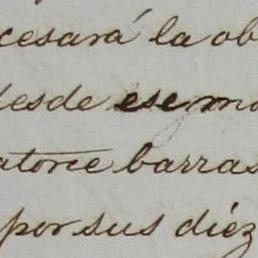 cesará la ob
desde ese mo
atorce barras
por sus diéz